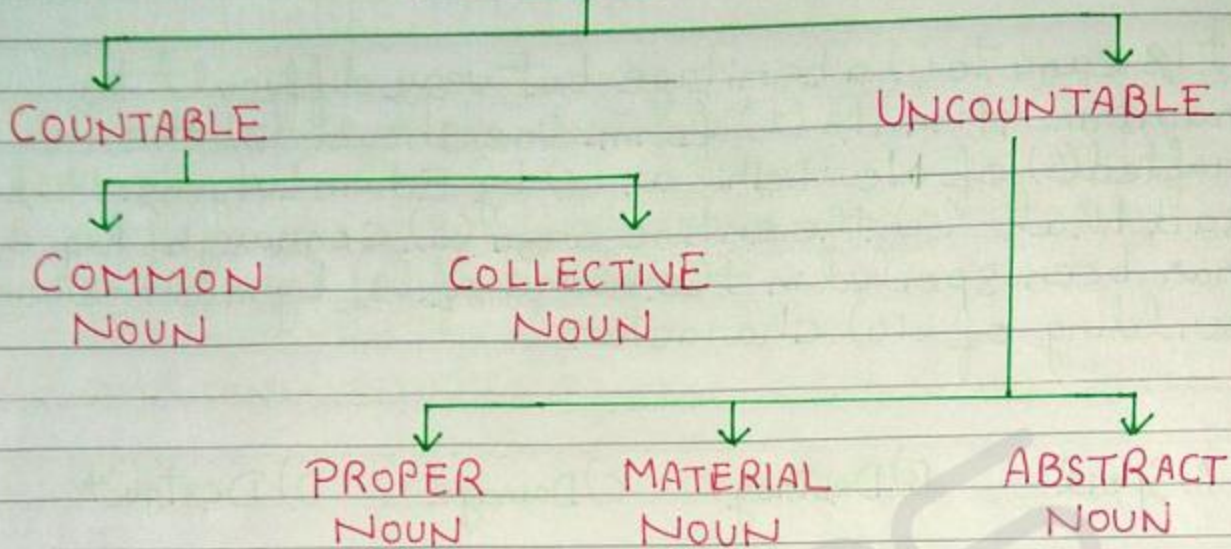 COUNTABLE
UNCOUNTABLE
COMMON
NOUN
COLLECTIVE
NOUN
PROPER
NOUN
MATERIAL
NOUN
ABSTRACT
NOUN